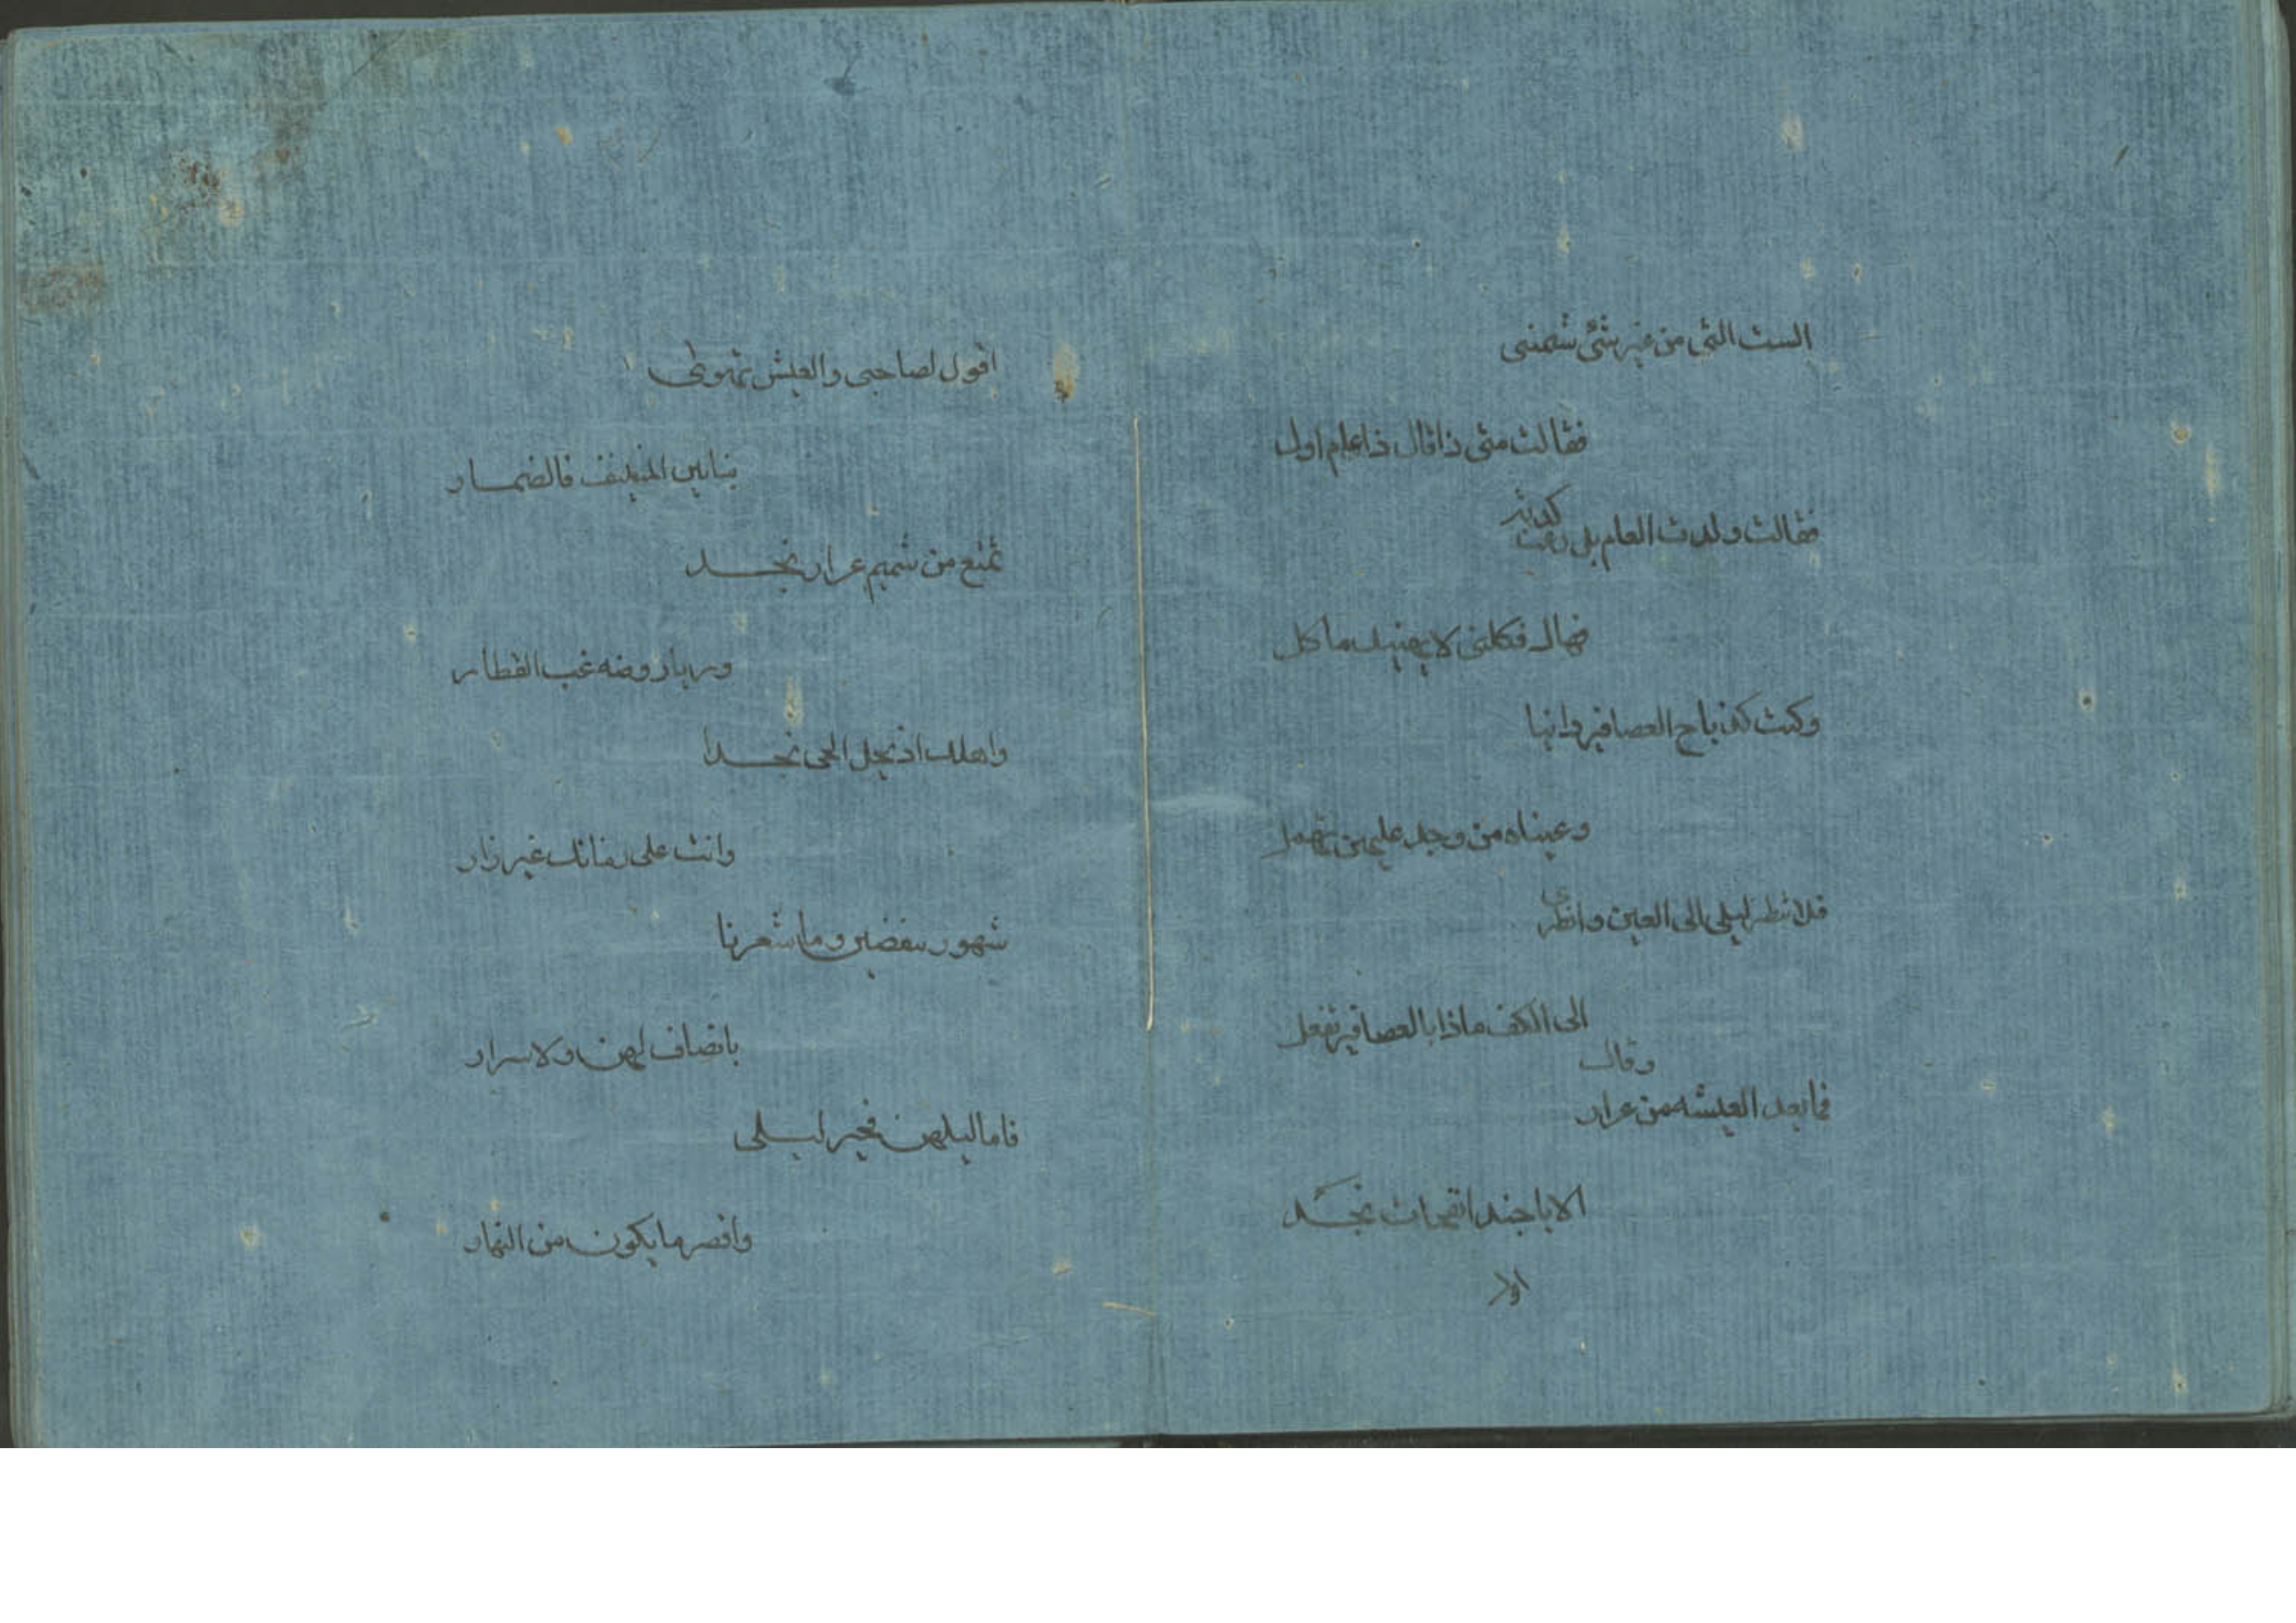 الست التى من غير شئ شتمتنى
فقالت متى ذا قال ذا عام اول
كدبتر
فقالت ولدت العام بل رمت
فهاك فكلنى لا يهنيك ماكل
وكنت كذباح العصافير دانيا
وعيناه من وجد عليهن تهمل
فلا تنظر ليلى الى العين وانظرى
الى الكف ماذا بالعصافير تفعل
وقال
فما بعد العيشه من عرار
الا يا حبذا نفحات نجد
اقول لصاحبى والعيش تهوى
بنا بين المنيفه فالضمار
تمتع من شميم عرار نجد
وريا روضه غب القطار
واهلك اذ يحل الحى نجدا
وانت على زمانك غير زار
شهور ينقضين وما شعرنا
بانصاف لهن ولا سرار
فاما ليلهن فخير ليلى
واقصر ما يكون من النهار